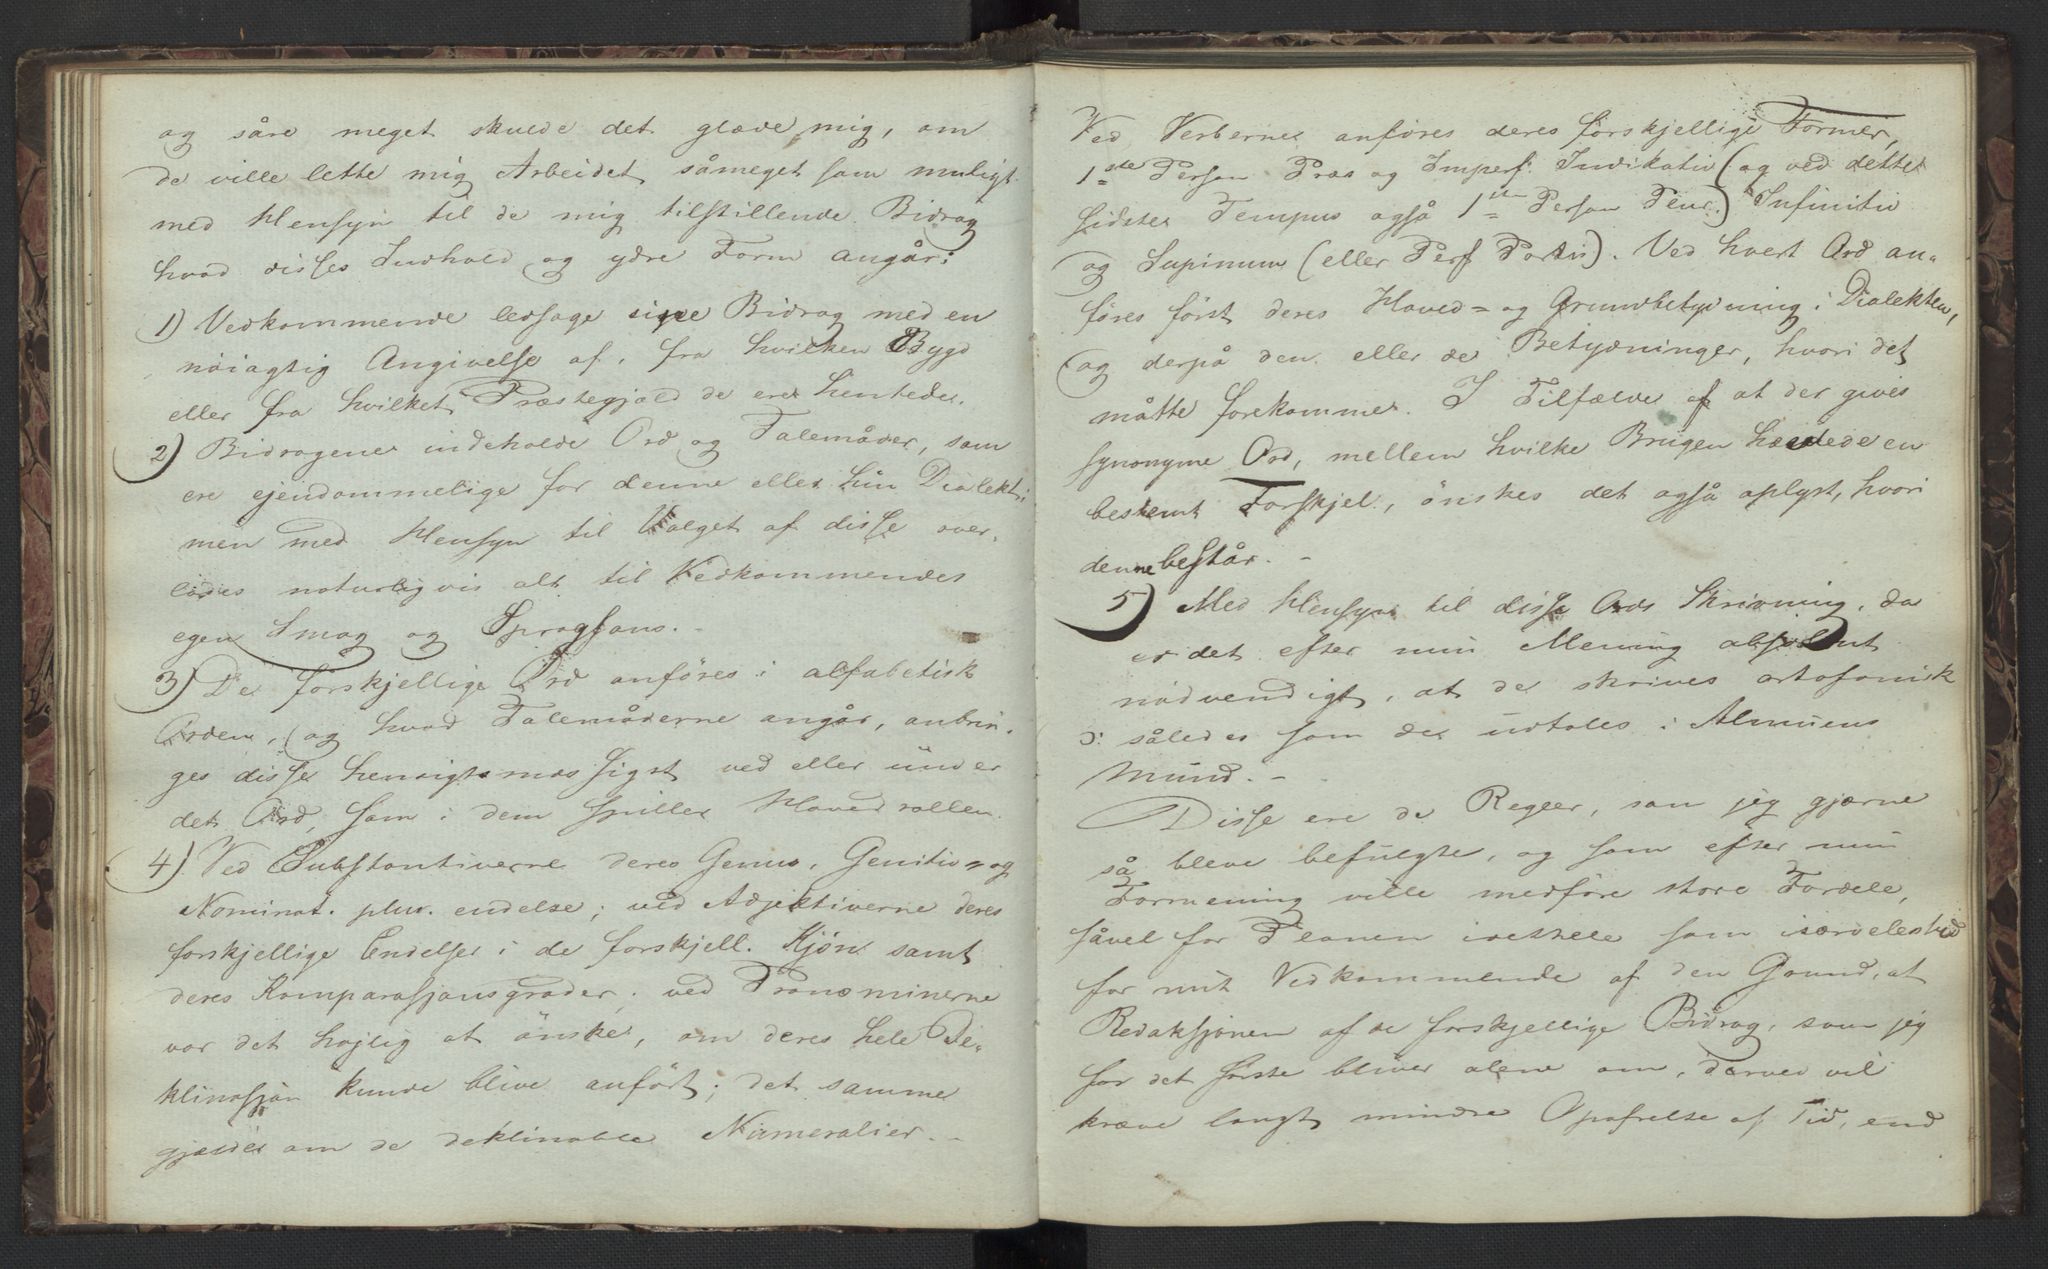 og såre meget skulde det glæde mig, om
de ville lette mig Arbeidet såmeget som muligt
med Hensyn til de mig tilstillende Bidrag
hvad disses Indhold og ydre Form angår:
1) Vedkommende ledsage sine Bidrag med en
nöiagtig Angivelse af, fra hvilken Bygd
eller fra hvilket Præstegjæld de ere hentede.
2) Bidragene indeholde Ord og Talemåder, som
ere ejendommelige for denne eller hin Dialekt;
men med Hensyn til Valget af disse over-
lades naturligvis alt til Vedkommendes
egen Smag og Sprogsans. -
3) De forskjellige Ord anföres i alfabetisk
Orden, og hvad Talemåderne angår, anbrin-
ges disse hensigtsmæssigst ved eller under
det Ord, som i dem spiller Hovedrollen.
4) Ved Substantiverne deres Genus, Genitiv= og
Nominat. plur. endelse; ved Adjektiverne deres
forskjellige Endelser i de forskjell. Kjön samt
deres Komparasjonsgrader; ved Pronominerne
var det höjlig at önske, om deres hele De-
klinasjon kunde blive anfört; det samme
gjælder om de deklinable Numeralier. -
Ved Verberne anföres deres forskjellige Former,
1ste Person Præs og Imperf. Indikativ (og ved dette
sidste Tempus også 1ste Person Plur.) Infinitiv
og Supinum (eller Perf Partis). Ved hvert Ord an-
föres först deres Hoved= og Grundbetydning i Dialekten,
og derpå den eller de Betydninger, hvori det
måtte forekomme. I Tilfælde af at der gives
synonyme Ord, mellem hvilke Brugen hævdede en
bestemt Forskjel, önskes det også oplyst, hvori
denne består. -
5) Med Hensyn til disse Ords Skrivning, da
er det efter min Mening absolut
nödvendigt, at de skrives ortofonisk
ɔ: således som de udtales i Almuens
Mund. -
Disse ere de Regler, som jeg gjærne
så bleve befulgte, og som efter min
Formening ville medföre store Fordele,
såvel for Planen idethele som isærdeleshed
for mit Vedkommende af den Grund, at
Redaksjonen af de forskjellige Bidrag, som jeg
for det förste bliver alene om, derved vil
kræve langt mindre Opofrelse af Tid, end